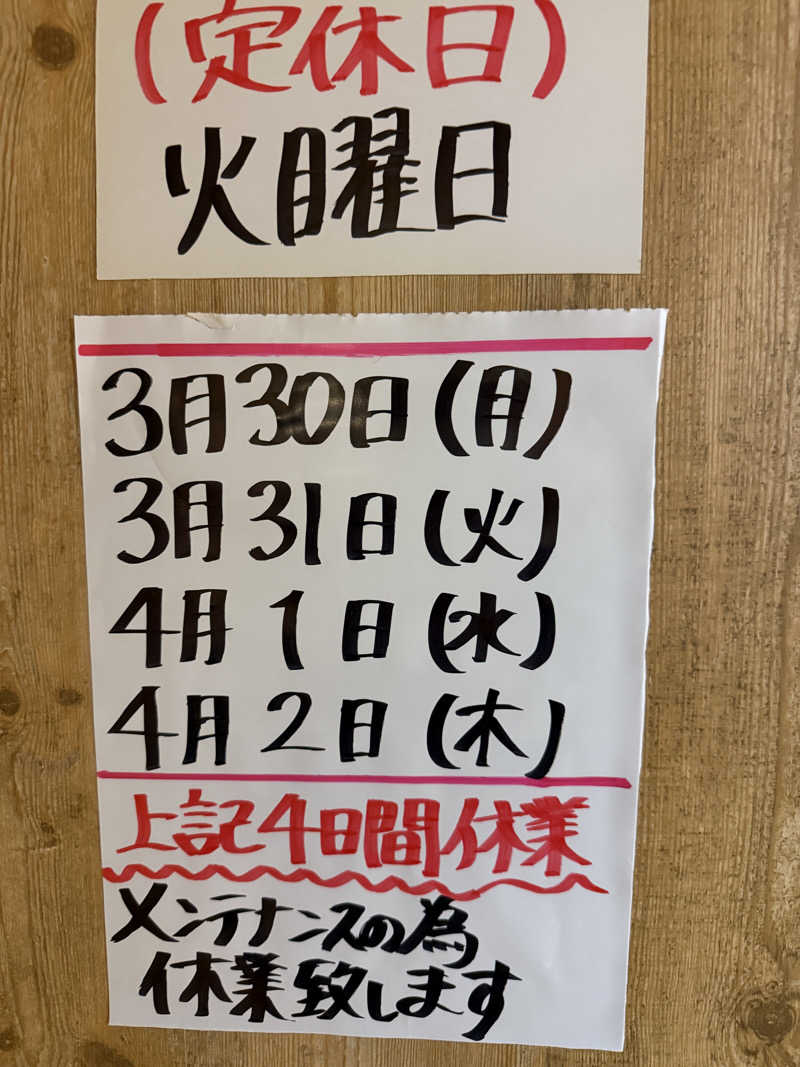 (定休日)
火曜日
3月30日(月)
3月31日(火)
4月1日(水)
4月2日(木)
上記4日間休業
メンテナンスの為
休業致します